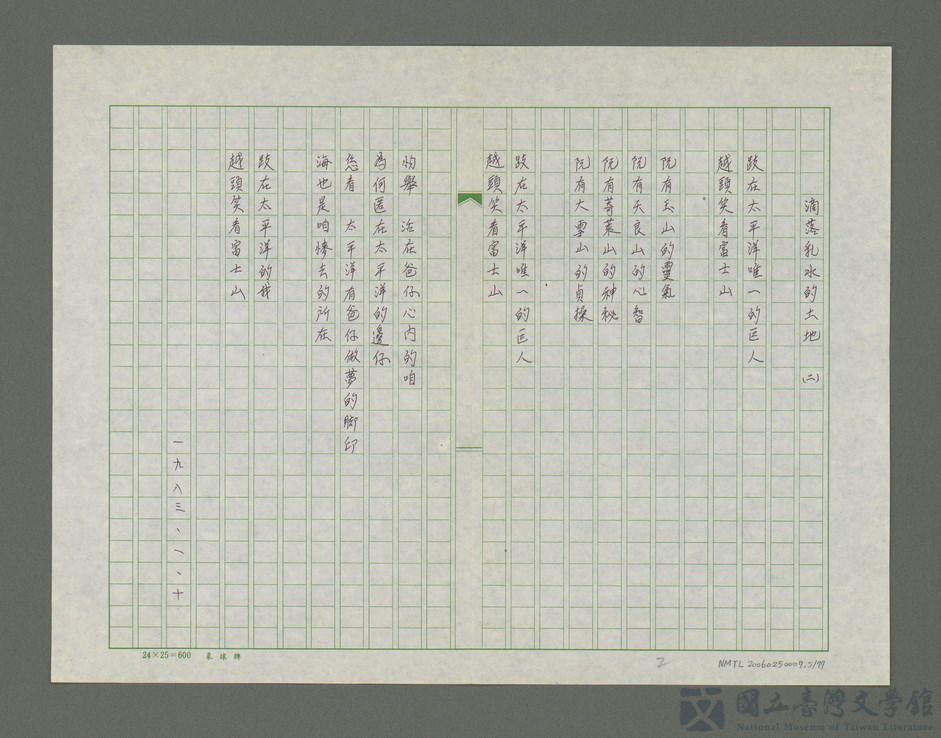 滴落乳水的土地 (二)
跤在太平洋唯一的巨人
越頭笑看富士山
阮有玉山的靈氣
阮有天良山的心智
阮有奇萊山的神祕
阮有大霸山的貞操
跤在太平洋唯一的巨人
越頭笑看富士山
治在爸仔心内的咱
為何匿在太平洋的邊仔
您看 太平洋有爸仔做夢的腳印
海也是咱慘去的所在
跤在太平洋的我
越頭笑看富士山
一九八三、一、十
24×25=600
2
NMTL 20060250007.5/77
國立臺灣文學館
National Museum of Taiwan Literature